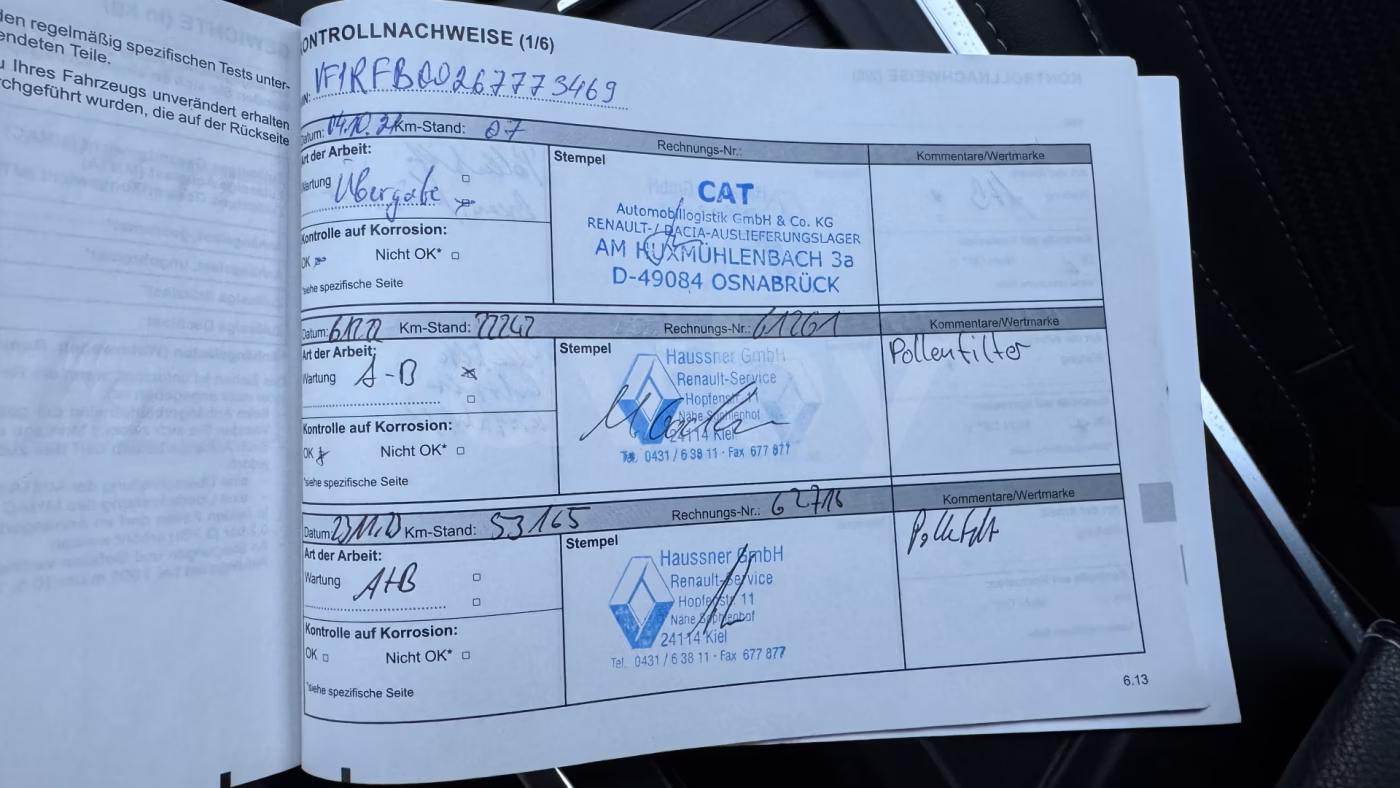 den regelmäßig spezifischen Tests unter-
endeten Teile.
u Ihres Fahrzeugs unverändert erhalten
rchgeführt wurden, die auf der Rückseite
ONTROLLNACHWEISE (1/6)
VF1RFB00267773469
Datum: 04.10.21 Km-Stand: 07 Rechnungs-Nr.:
Art der Arbeit:
Wartung Übergabe
Kontrolle auf Korrosion:
OK Nicht OK*
*siehe spezifische Seite
Stempel
CAT
Automobillogistik GmbH & Co. KG
RENAULT-/DACIA-AUSLIEFERUNGSLAGER
AM HUXMÜHLENBACH 3a
D-49084 OSNABRÜCK
Kommentare/Wertmarke
Datum: 6.12.22 Km-Stand: 22242 Rechnungs-Nr.: 61261
Art der Arbeit:
Wartung A-B
Kontrolle auf Korrosion:
OK Nicht OK*
*siehe spezifische Seite
Stempel
Haussner GmbH
Renault-Service
Hopfenstr. 11
Nähe Sophienhof
24114 Kiel
Tel. 0431 / 6 38 11 · Fax 677 877
Kommentare/Wertmarke
Pollenfilter
Datum: 23.11.23 Km-Stand: 53165 Rechnungs-Nr.: 62716
Art der Arbeit:
Wartung A+B
Kontrolle auf Korrosion:
OK Nicht OK*
*siehe spezifische Seite
Stempel
Haussner GmbH
Renault-Service
Hopfenstr. 11
Nähe Sophienhof
24114 Kiel
Tel. 0431 / 6 38 11 · Fax 677 877
Kommentare/Wertmarke
6.13